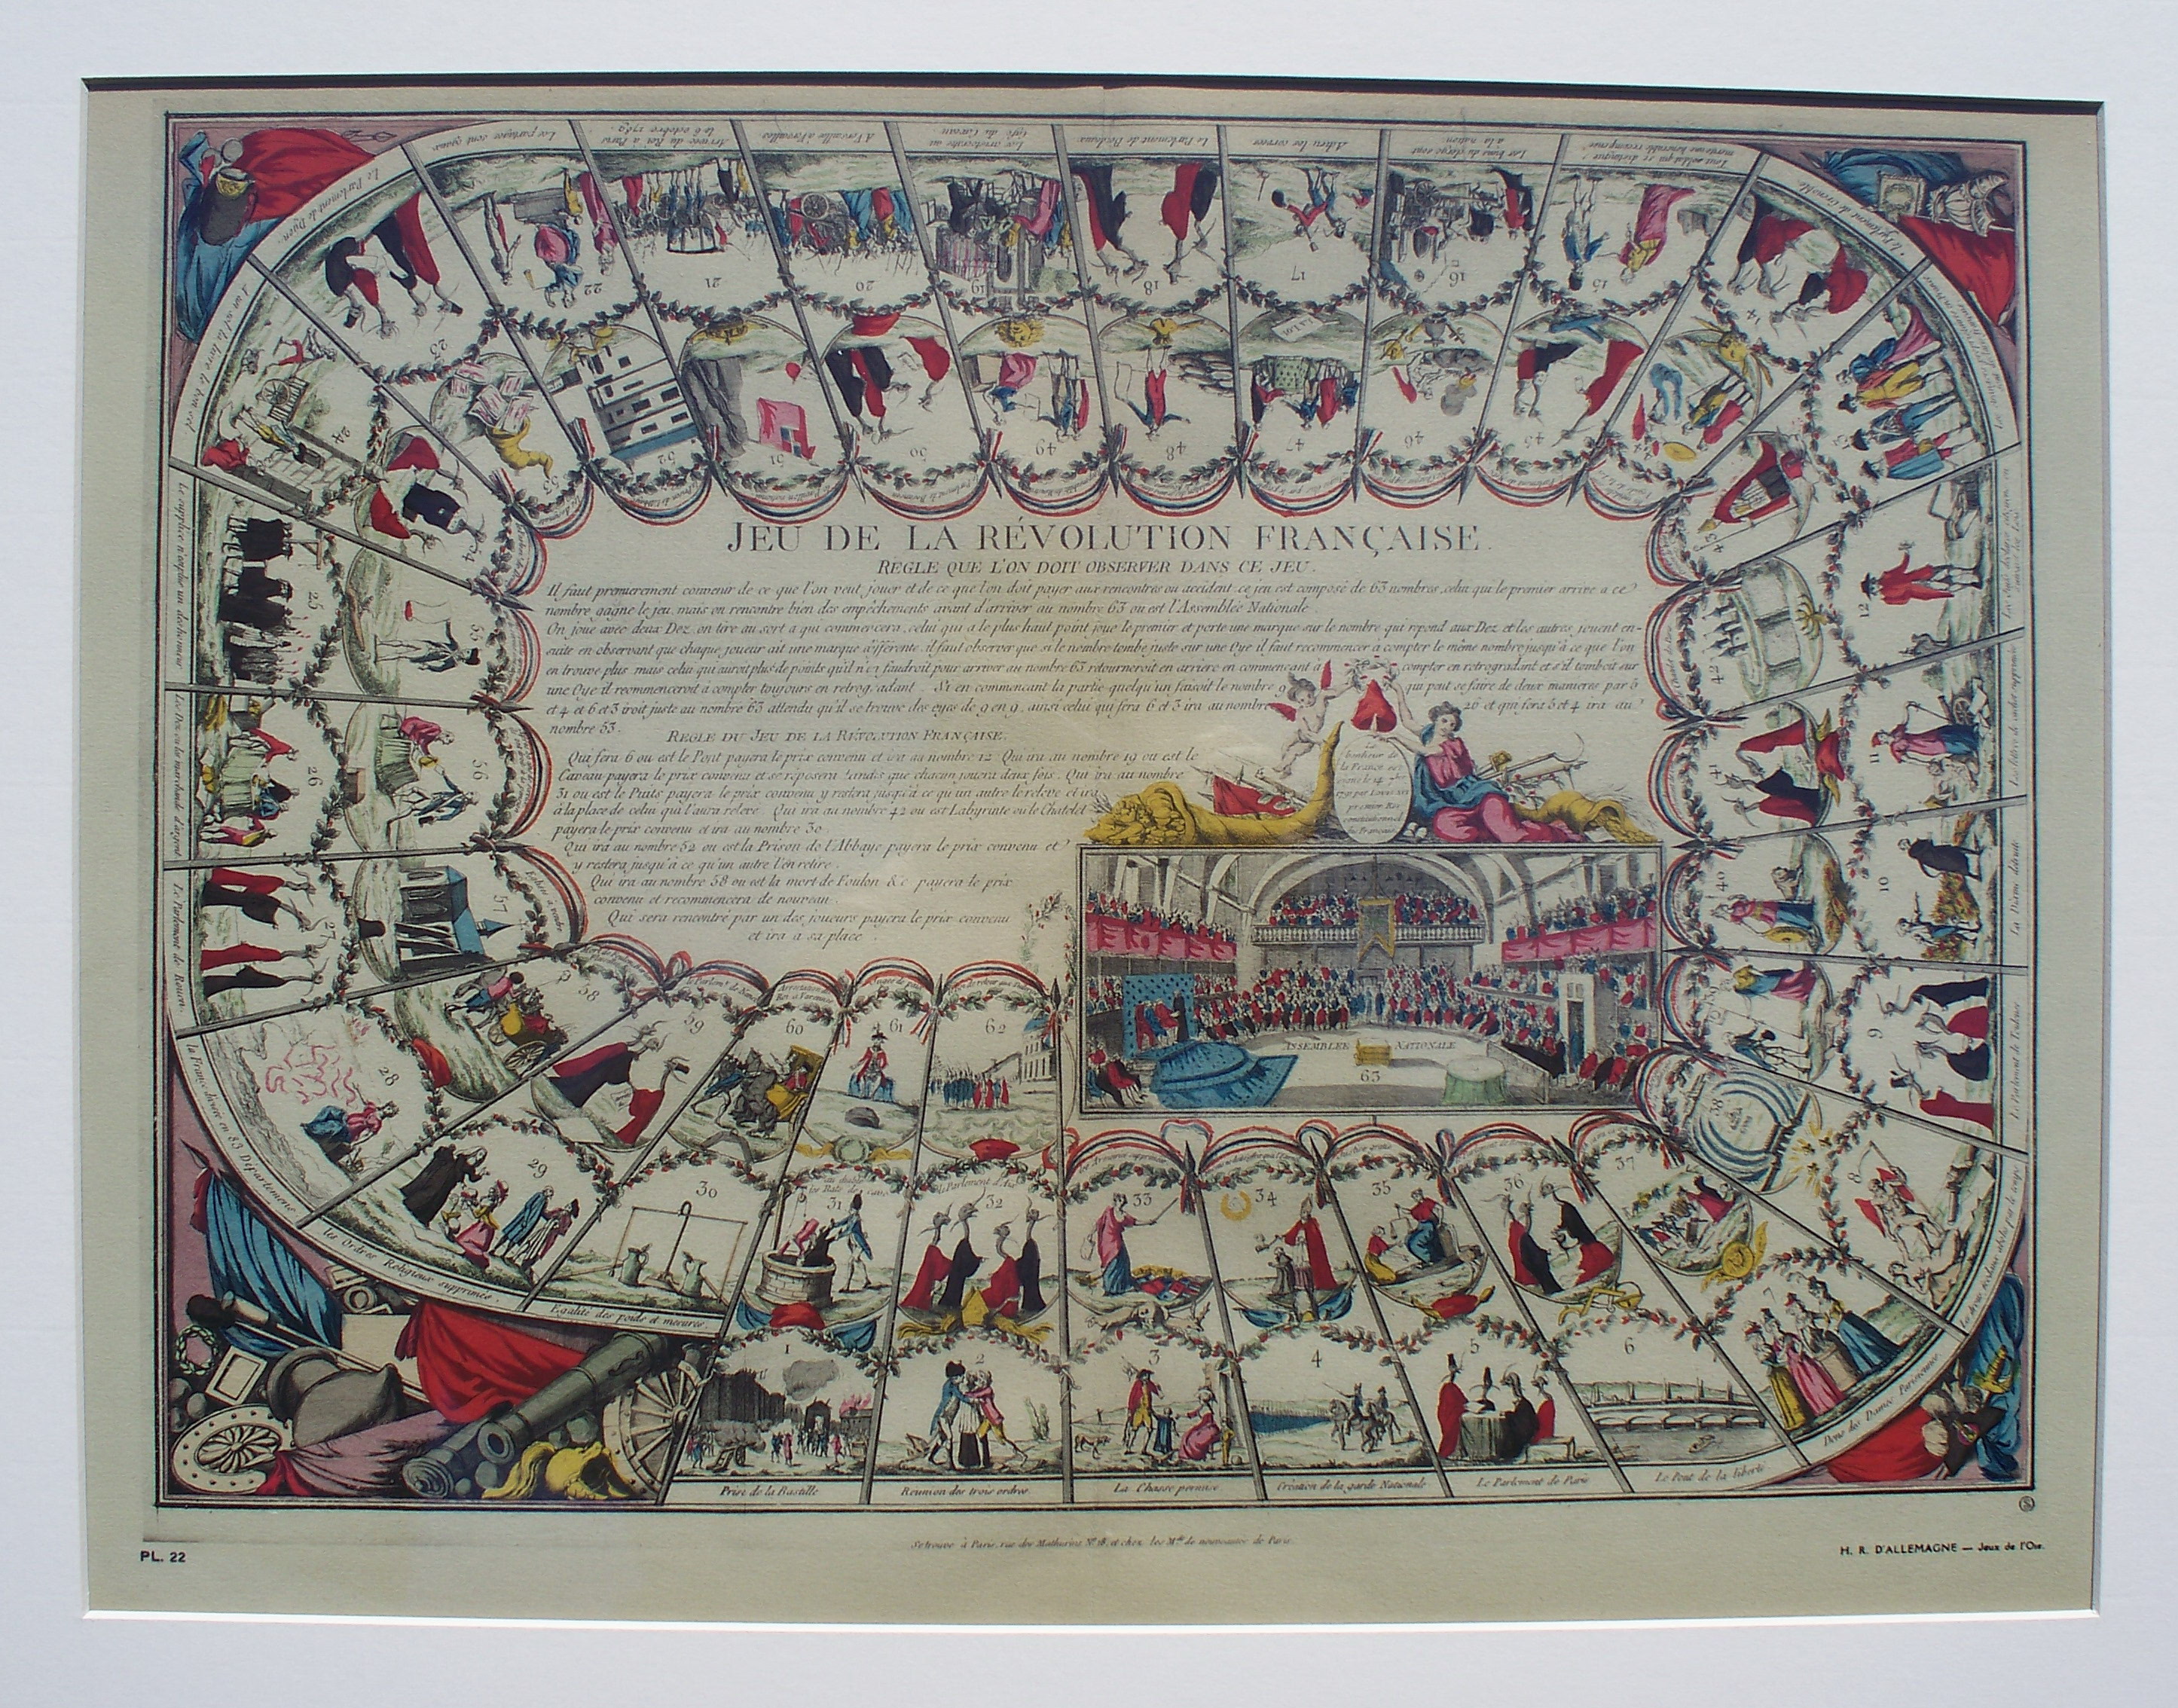 JEU DE LA RÉVOLUTION FRANÇAISE.
REGLE QUE L'ON DOIT OBSERVER DANS CE JEU.
Il faut premierement convenir de ce que l'on veut jouer et de ce que l'on doit payer aux rencontres ou accident ce jeu est composé de 63 nombres celui qui le premier arrive a ce
nombre gagne le jeu, mais on rencontre bien des empêchements avant d'arriver au nombre 63 ou est l'Assemblée Nationale
On joue avec deux Dez, on tire au sort a qui commencera, celui qui a le plus haut point joue le premier et porte une marque sur le nombre qui répond aux Dez et les autres jouent en-
suite en observant que chaque joueur ait une marque différente il faut observer que si le nombre tombe juste sur une Oye il faut recommencer a compter le même nombre jusqu'à ce que l'on
en trouve plus mais celui qui auroit plus de points qu'il n'en faudroit pour arriver au nombre 63 retourneroit en arriere en commençant à compter en retrogradant et s'il tomboit sur
une Oye il recommenceroit a compter toujours en retrogradant Si en commencant la partie quelqu'un faisoit le nombre 9 qui peut se faire de deux manieres par 5
et 4 et 6 et 3 iroit juste au nombre 63 attendu qu'il se trouve des oyes de 9 en 9, ainsi celui qui fera 6 et 3 ira au nombre 26 et qui fera 5 et 4 ira au
nombre 53.
REGLE DU JEU DE LA RÉVOLUTION FRANÇAISE.
Qui fera 6 ou est le Pont payera le prix convenu et ira au nombre 12 Qui ira au nombre 19 ou est le
Caveau payera le prix convenu et se reposera tandis que chacun jouera deux fois. Qui ira au nombre
31 ou est le Puits payera le prix convenu y restera jusqu'à ce qu'un autre le releve et ira
à la place de celui qui l'aura relevé Qui ira au nombre 42 ou est Labyrinte ou le Chatelet
payera le prix convenu et ira au nombre 30
Qui ira au nombre 52 ou est la Prison de l'Abbaye payera le prix convenu et
y restera jusqu'à ce qu'un autre l'en retire.
Qui ira au nombre 58 ou est la mort de Foulon &c payera le prix
convenu et recommencera de nouveau
Qui sera rencontré par un des joueurs payera le prix convenu
et ira a sa place.
Le
bonheur de
la France
par Louis XVI
premier Roi
constitutionnel
des Français
ASSEMBLEE NATIONALE
63
1
Prise de la Bastille
2
Reunion des trois ordres
3
La Chasse permise
4
Création de la garde Nationale
5
Le Parlement de Paris
6
Le Pont de la liberté
Dons des Dames Parisiennes
8
9
Le Parlement de Toulouse
10
La Dixme détruite
11
Les lettres de cachet supprimées
12
14
Le Parlement de Grenoble
15
Tout soldat qui se distingue
merite une honorable recompense
16
Les biens du clergé sont
a la nation
17
Adieu les corvees
18
Le Parlement de Bordeaux
19
Les aristocrates au
Café du Caveau
20
A Versailles a Versailles
21
Arrivée du Roi a Paris
le 6 octobre 1789
22
Les partages sont egaux
23
Le Parlement de Dijon
24
25
Le supplice n'est plus un deshonneur
26
27
Le Parlement de Rouen
28
la France divisée en 83 Departements
29
les Ordres Religieux supprimés
30
Egalité des poids et mesures
31
32
le Parlement d'Aix
33
34
35
36
37
38
40
41
42
43
45
46
47
48
49
50
51
52
53
54
55
56
57
Eglise a vendre
58
59
60
Arrestation du
Roi a Varennes
61
62
Se trouve à Paris, rue des Mathurins N° 18, et chez les Mds de nouveautés de Paris
PL. 22
H. R. D'ALLEMAGNE — Jeux de l'Oie.